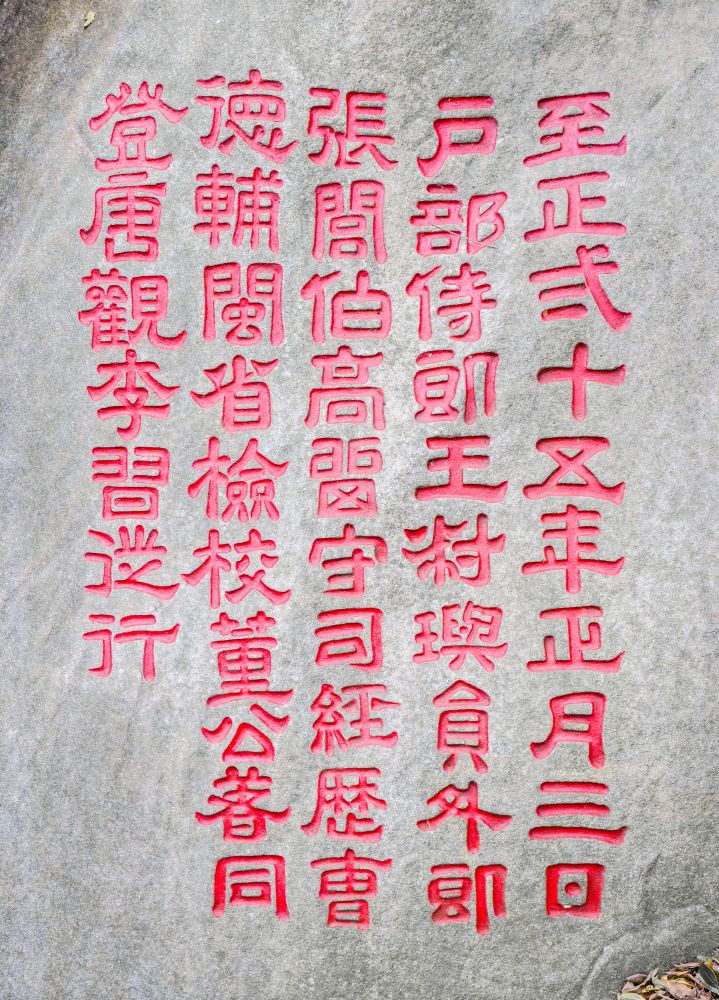 至正弍十五年正月三日
戶部侍郎王将璵員外郎
張閭伯高留守司經歷曹
德輔閩省檢校董公著同
登唐觀李習從行